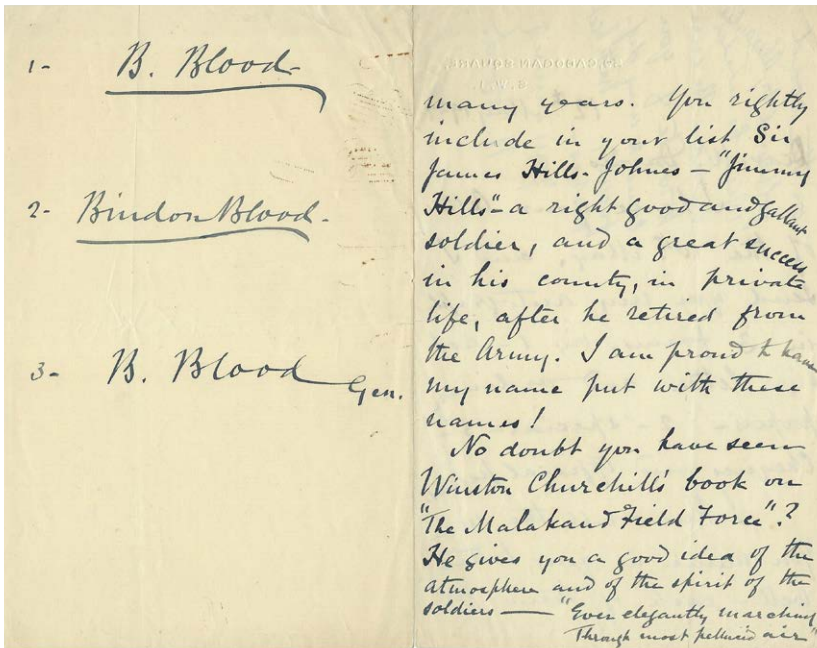 1- B. Blood
2- Bindon Blood.
3- B. Blood Gen.
many years. You rightly
include in your list Sir
James Hills-Johnes – "Jimmy
Hills" – a right good and gallant
soldier, and a great success
in his county, in private
life, after he retired from
the Army. I am proud to have
my name put with these
names!
No doubt you have seen
Winston Churchill's book on
"The Malakand Field Force"?
He gives you a good idea of the
atmosphere and of the spirit of the
soldiers — "Ever elegantly marching
Through most pellucid air"